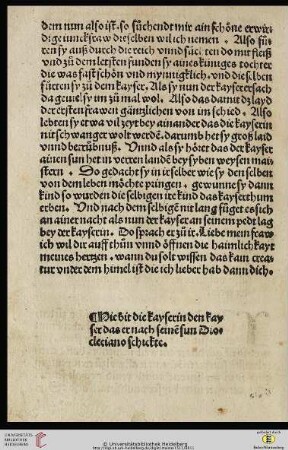 dem nun also ist. so süchent mir ain schöne erwir
dige iunckfraw dieselben wil ich nemen. Also fü
ren sy auß durch die reich vnnd süchten do mit fleiß
vnd zů dem letsten funden sy aines küniges tochter
die was fast schön vnd mynnigklich. vnd die selben
fürten sy zů dem kayser. Als sy nun der kayser ersach
da geuiel sy im zů mal wol. Also das damit dz layd
der ersten frawen gäntzlichen von im schied. Also
lebten sy etwa vil zeyt bey ainander das die kayserin
nit schwanger wolt werdē. darumb het sy groß laid
vnnd betrübnuß. Vnnd als sy höret das der kayser
ainen sun het in verren landē bey syben weysen mai
stern. Do gedacht sy in ir selber wie sy den selben
von dem leben möchte pringen. gewunne sy dann
kind so wurden die selbigen ire kind das kayserthum
erben. Vnd nach dem selbigē nit lang füget es sich
an ainer nacht als nun der kayser an seinem pedt lag
bey der kayserin. Do sprach er zů ir. Liebe mein fraw
ich wil dir auff thůn vnnd öffnen die haimlichkayt
meines hertzen. wann du solt wissen das kain crea
tur vnder dem himel ist die ich lieber hab dann dich.
¶Wie bit die kayserin den kay
ser das er nach seinē sun Dio
cleciano schickte.
UNIVERSITÄTS-
BIBLIOTHEK
HEIDELBERG
© Universitätsbibliothek Heidelberg
gefördert durch
Baden-Württemberg